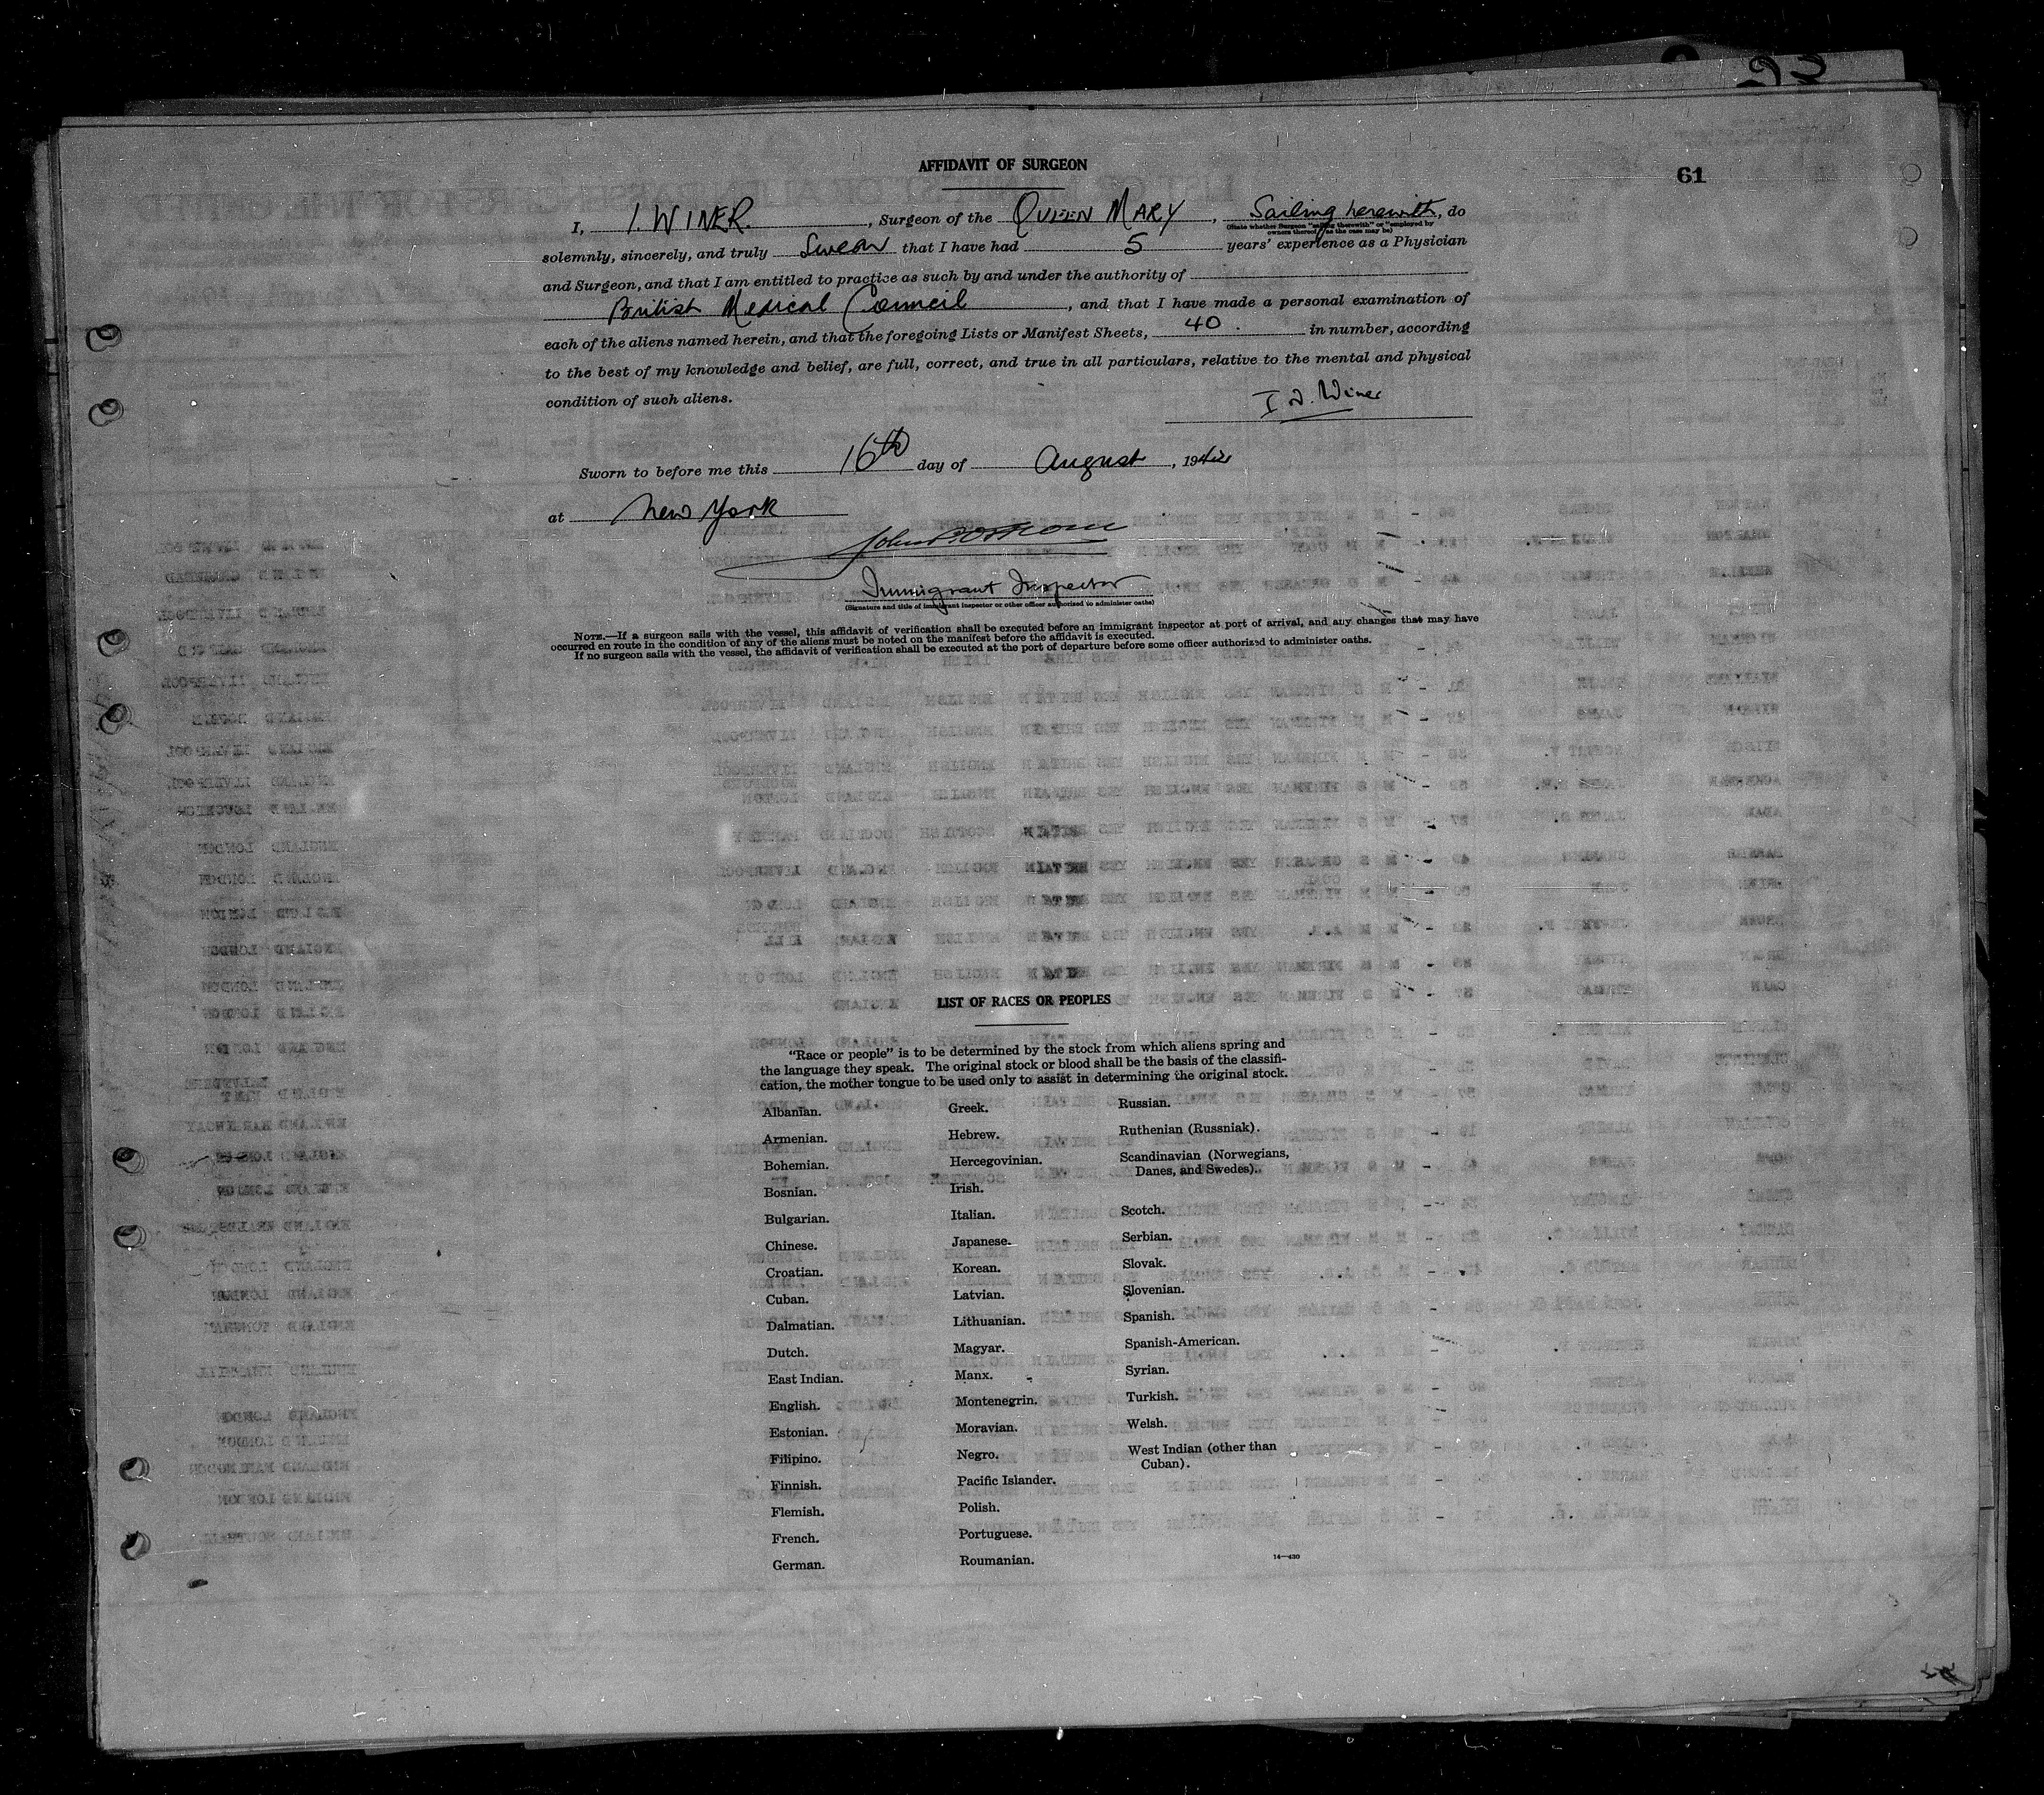 AFFIDAVIT OF SURGEON
61
I, I. WINER., Surgeon of the QUEEN MARY, Sailing herewith, do
(State whether Surgeon "sailing therewith" or "employed by
owners thereof," as the case may be)
solemnly, sincerely, and truly Swear that I have had 5 years' experience as a Physician
and Surgeon, and that I am entitled to practice as such by and under the authority of
British Medical Council, and that I have made a personal examination of
each of the aliens named herein, and that the foregoing Lists or Manifest Sheets, 40. in number, according
to the best of my knowledge and belief, are full, correct, and true in all particulars, relative to the mental and physical
condition of such aliens.
Winer
Sworn to before me this 16th day of August, 194
at New York
John
Immigrant Inspector
(Signature and title of immigrant inspector or other officer authorized to administer oaths)
NOTE.—If a surgeon sails with the vessel, this affidavit of verification shall be executed before an immigrant inspector at port of arrival, and any changes that may have
occurred en route in the condition of any of the aliens must be noted on the manifest before the affidavit is executed.
If no surgeon sails with the vessel, the affidavit of verification shall be executed at the port of departure before some officer authorized to administer oaths.
LIST OF RACES OR PEOPLES
"Race or people" is to be determined by the stock from which aliens spring and
the language they speak. The original stock or blood shall be the basis of the classifi-
cation, the mother tongue to be used only to assist in determining the original stock.
Albanian.
Armenian.
Bohemian.
Bosnian.
Bulgarian.
Chinese.
Croatian.
Cuban.
Dalmatian.
Dutch.
East Indian.
English.
Estonian.
Filipino.
Finnish.
Flemish.
French.
German.
Greek.
Hebrew.
Hercegovinian.
Irish.
Italian.
Japanese.
Korean.
Latvian.
Lithuanian.
Magyar.
Manx.
Montenegrin.
Moravian.
Negro.
Pacific Islander.
Polish.
Portuguese.
Roumanian.
Russian.
Ruthenian (Russniak).
Scandinavian (Norwegians,
Danes, and Swedes).
Scotch.
Serbian.
Slovak.
Slovenian.
Spanish.
Spanish-American.
Syrian.
Turkish.
Welsh.
West Indian (other than
Cuban).
14—430